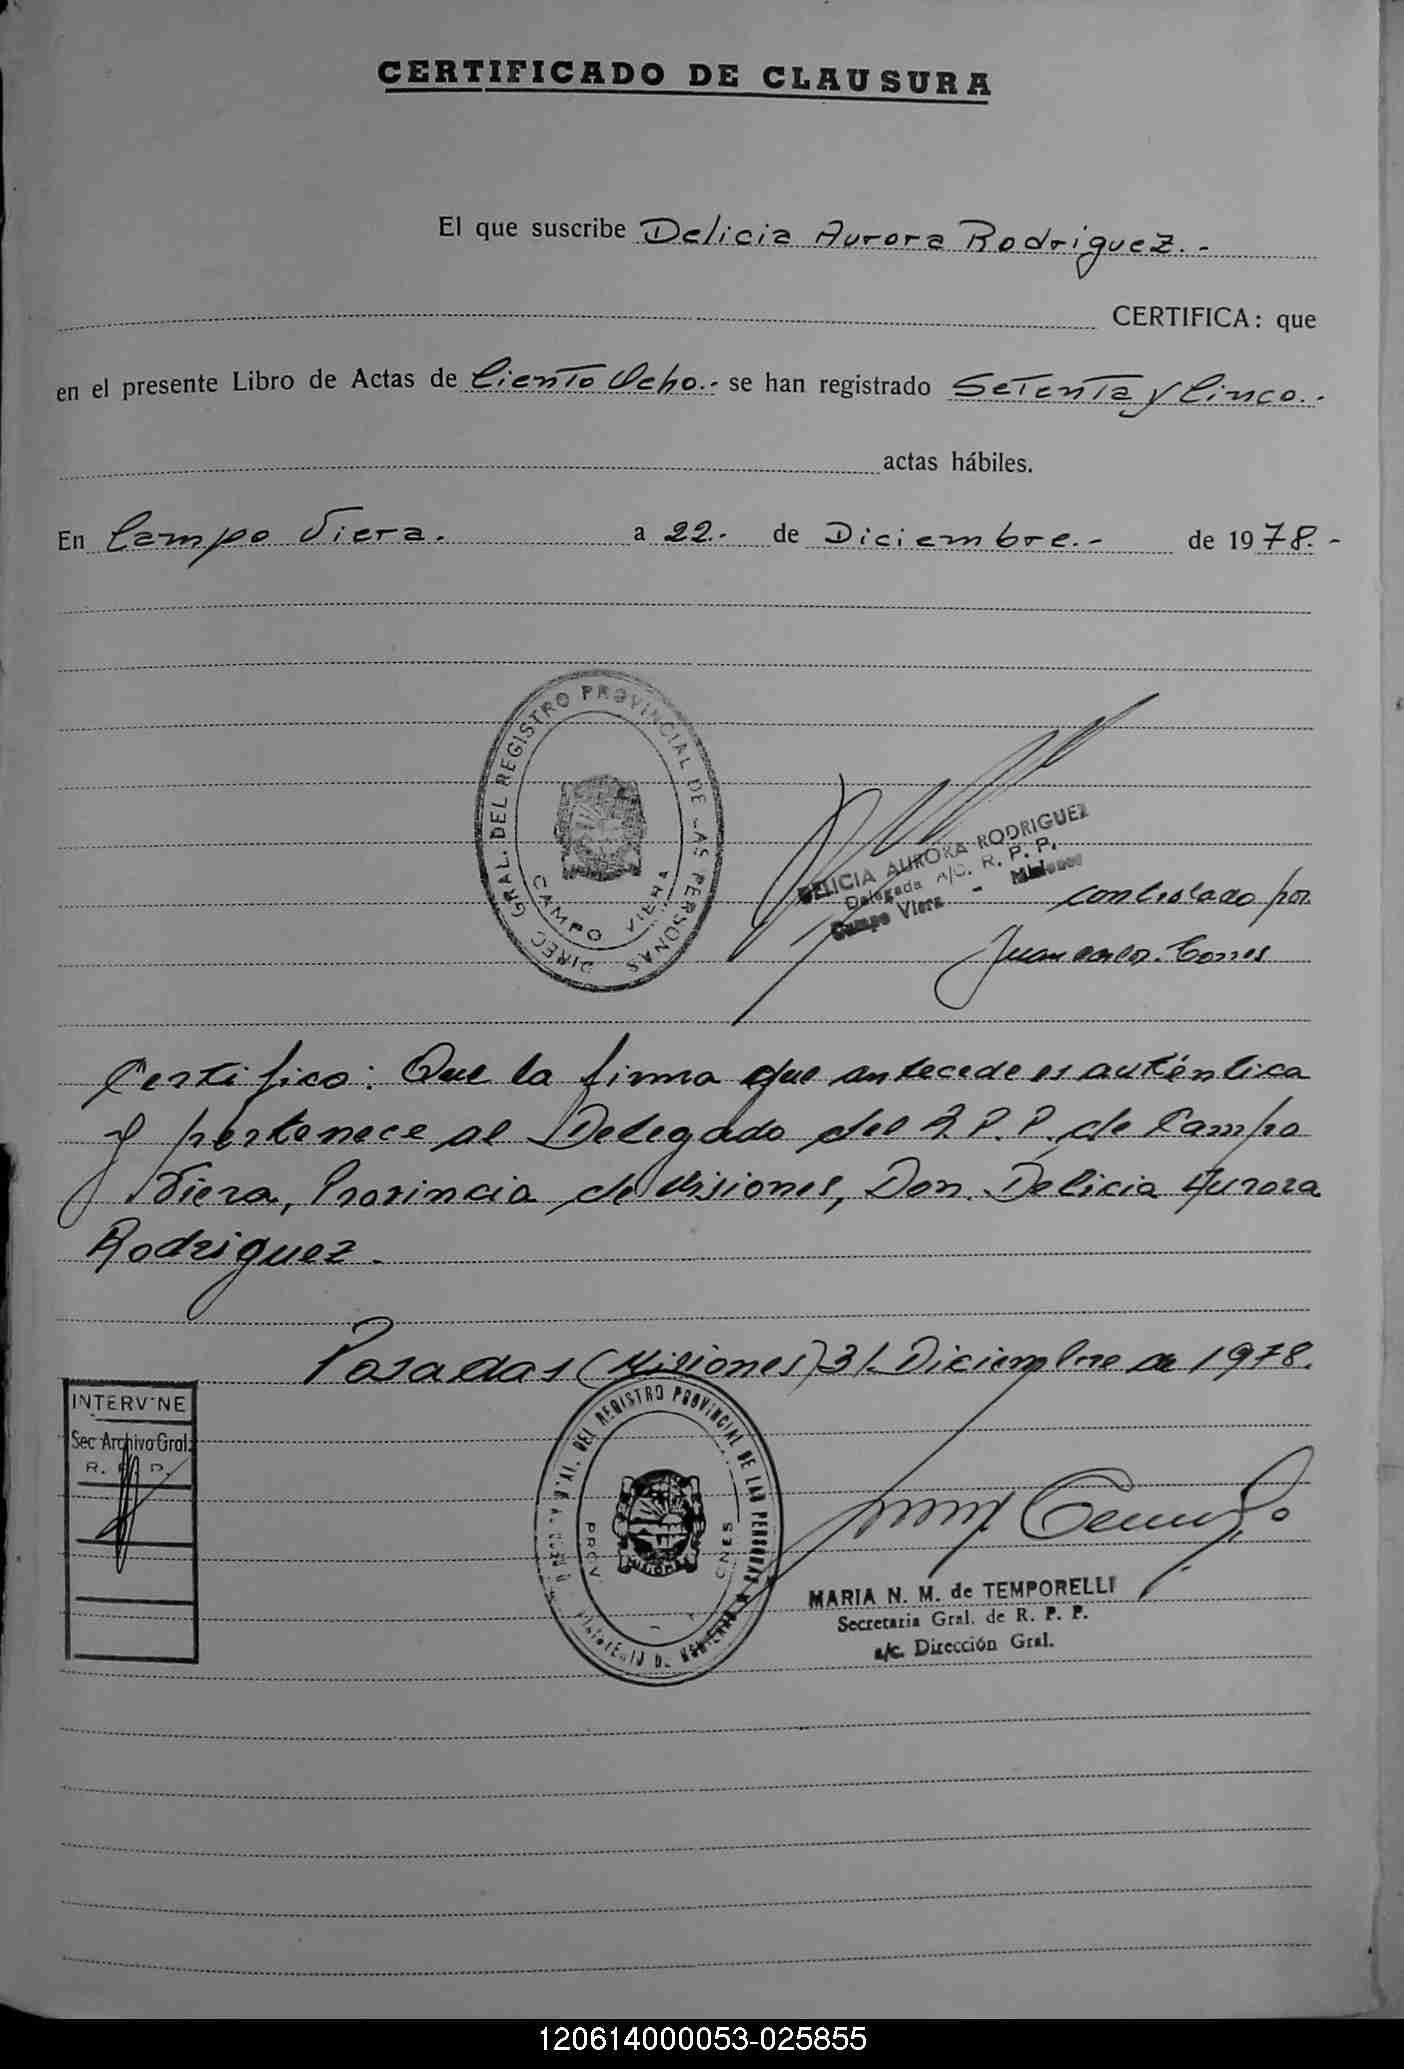 CERTIFICADO DE CLAUSURA
El que suscribe Delicia Aurora Rodriguez.-
CERTIFICA: que
en el presente Libro de Actas de Ciento Ocho.- se han registrado Setenta y Cinco.-
actas hábiles.
En Campo Viera. a 22.- de Diciembre.- de 1978.-
DIREC. GRAL. DEL REGISTRO PROVINCIAL DE LAS PERSONAS
CAMPO VIERA
DELICIA AURORA RODRIGUEZ
Delegada A/C. R. P. P.
Campo Viera - Misiones
controlado por
Juan Carlos Torres
Certifico: Que la firma que antecede es auténtica
y pertenece al Delegado del R.P.P. de Campo
Viera, Provincia de Misiones, Don. Delicia Aurora
Rodriguez.-
Posadas (Misiones) 31. Diciembre de 1978.
INTERVINE
Sec Archivo Gral.
R. P. P.
GRAL. DEL REGISTRO PROVINCIAL DE LAS PERSONAS
MISIONES
MARIA N. M. de TEMPORELLI
Secretaria Gral. de R. P. P.
a/c. Dirección Gral.
120614000053-025855